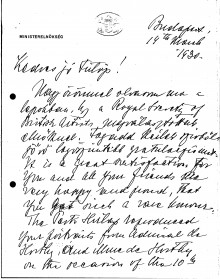 MINISTERELNÖKSÉG
Budapest,
14th March
1930.
Kedves jó Fülöp!
Nagy örömmel olvasom ma a
lapokban, hogy a Royal Society of
British Artists megválasztottak
elnöknek. Fogadd
jövő legőszintébb gratulációmat.
It is a great satisfaction for
you and all your friends are
very happy and proud, that
you got such a rare honour.
The Pesti Hirlap reproduced
your portraits from Admiral de
Horthy, and Mme de Horthy
on the occasion of the 10th